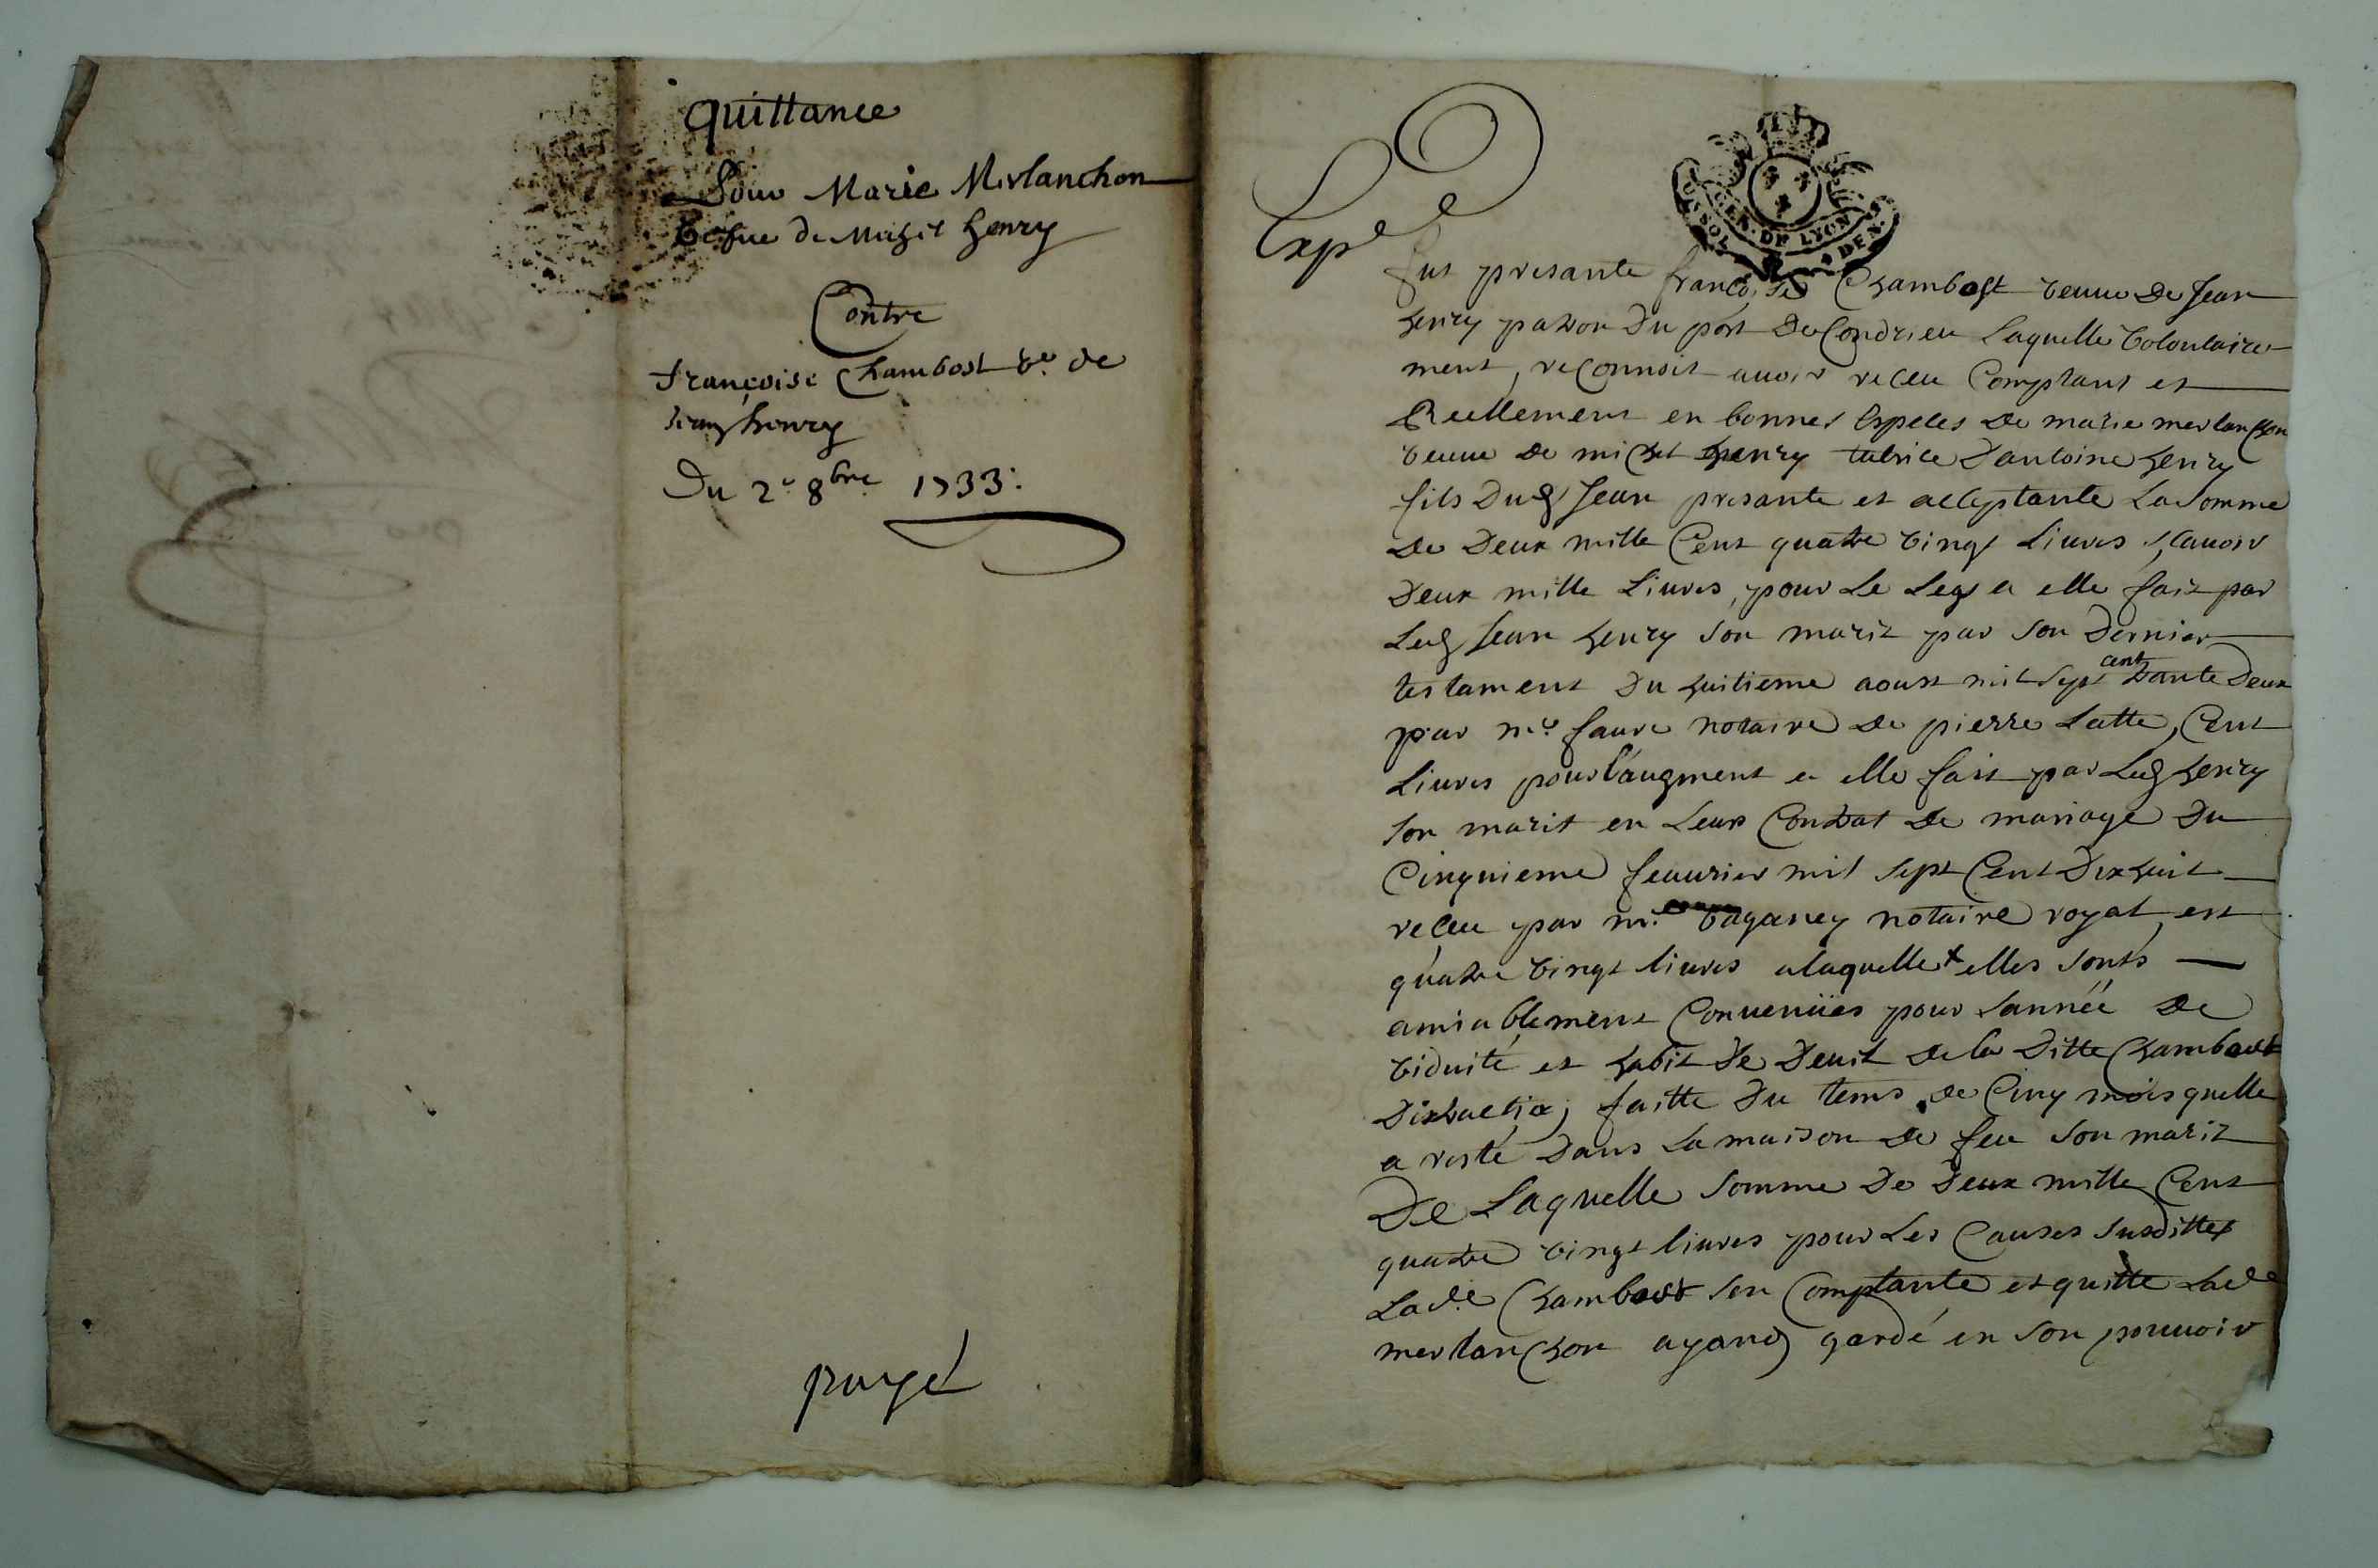 quittance
Pour Marie Merlanchon
Vefue de Michel henry
Contre
françoise Chambost v.e de
Jean henry
Du 2.e 8bre 1733.
payé
GEN. DE LYON
Exp.e
fut presante françoise Chambost veuue De Jean
henry patron Du port De Condrieu laquelle volontaire
ment, reconnoit auoir receu Comptant et
Reellement en bonnes Especes De marie merlanchon
veuue De michel henry tutrice D'antoine henry
fils Dud Jean presante et acceptante La Somme
De Deux mille Cent quatre vingt Liures, scauoir
Deux mille Liures, pour Le Leg a elle fait par
Led Jean henry son marit par son Dernier
testament Du huitieme aoust mil sept cent trante Deux
par m.e faure notaire De pierre Latte, Cent
Liures pour l'augment a elle fait par Led henry
son marit en Leur Contrat De mariage Du
Cinquieme feaurier mil sept Cent Dixhuit
receu par m.e vaganey notaire royal, est
quatre vingt liures alaquelle elles sonts
amiablement Conuenües pour Lannée De
viduité et habit De Deuil De la Ditte Chambost
Distraction faitte Du tems De Cinq mois quelle
a resté Dans La maison De feu son marit
De Laquelle somme De Deux mille Cent
quatre vingt liures pour Les Causes Susdittes
Lad.e Chambost sen Comptante et quitte Lad.e
merlanchon ayand gardé en son pouuoir